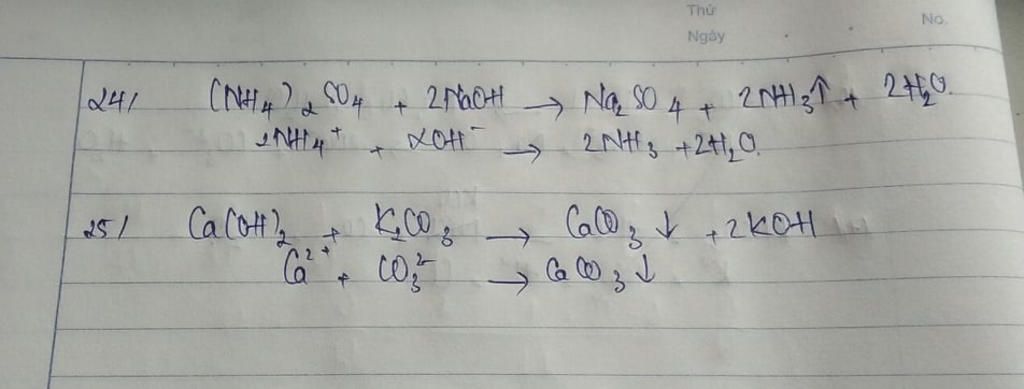 Thứ
Ngày
No.
24/ (NH₄)₂SO₄ + 2NaOH → Na₂SO₄ + 2NH₃↑ + 2H₂O.
2NH₄⁺ + 2OH⁻ → 2NH₃ + 2H₂O.
25/ Ca(OH)₂ + K₂CO₃ → CaCO₃↓ + 2KOH
Ca²⁺ + CO₃²⁻ → CaCO₃↓